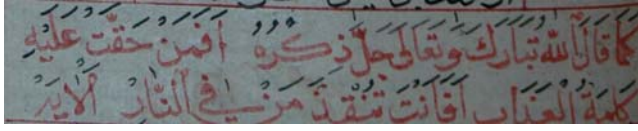 كما قال الله تبارك وتعالى جل ذكره افمن حقت عليه
كلمة العذاب افانت تنقذ من في النار الايه